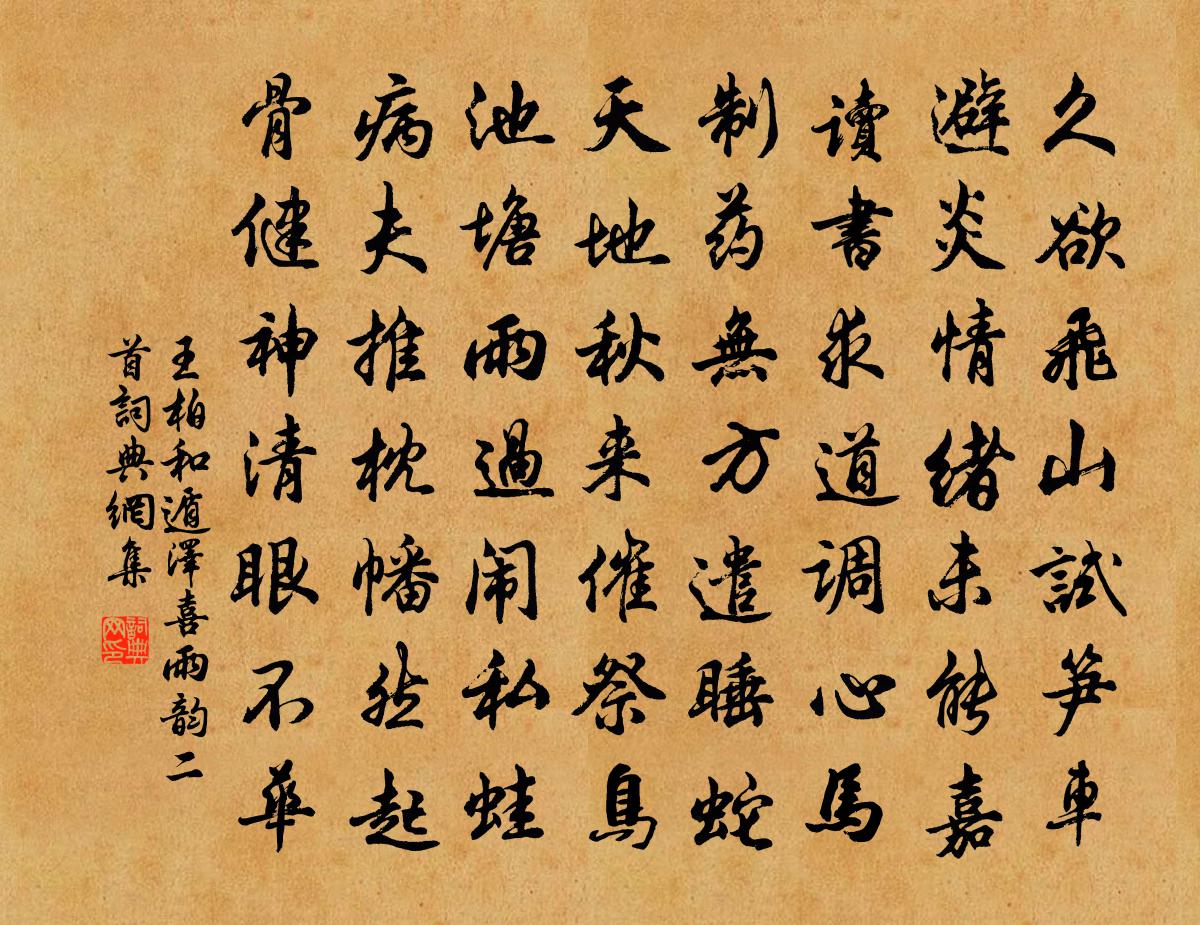 久欲飛山試笋車
避炎情緒未能嘉
讀書求道调心馬
制药無方遣睡蛇
天地秋来催祭鳥
池塘雨過闹私蛙
病夫推枕幡然起
骨健神清眼不華
王柏和遁澤喜雨韵二
首詞典網集
詞典网印